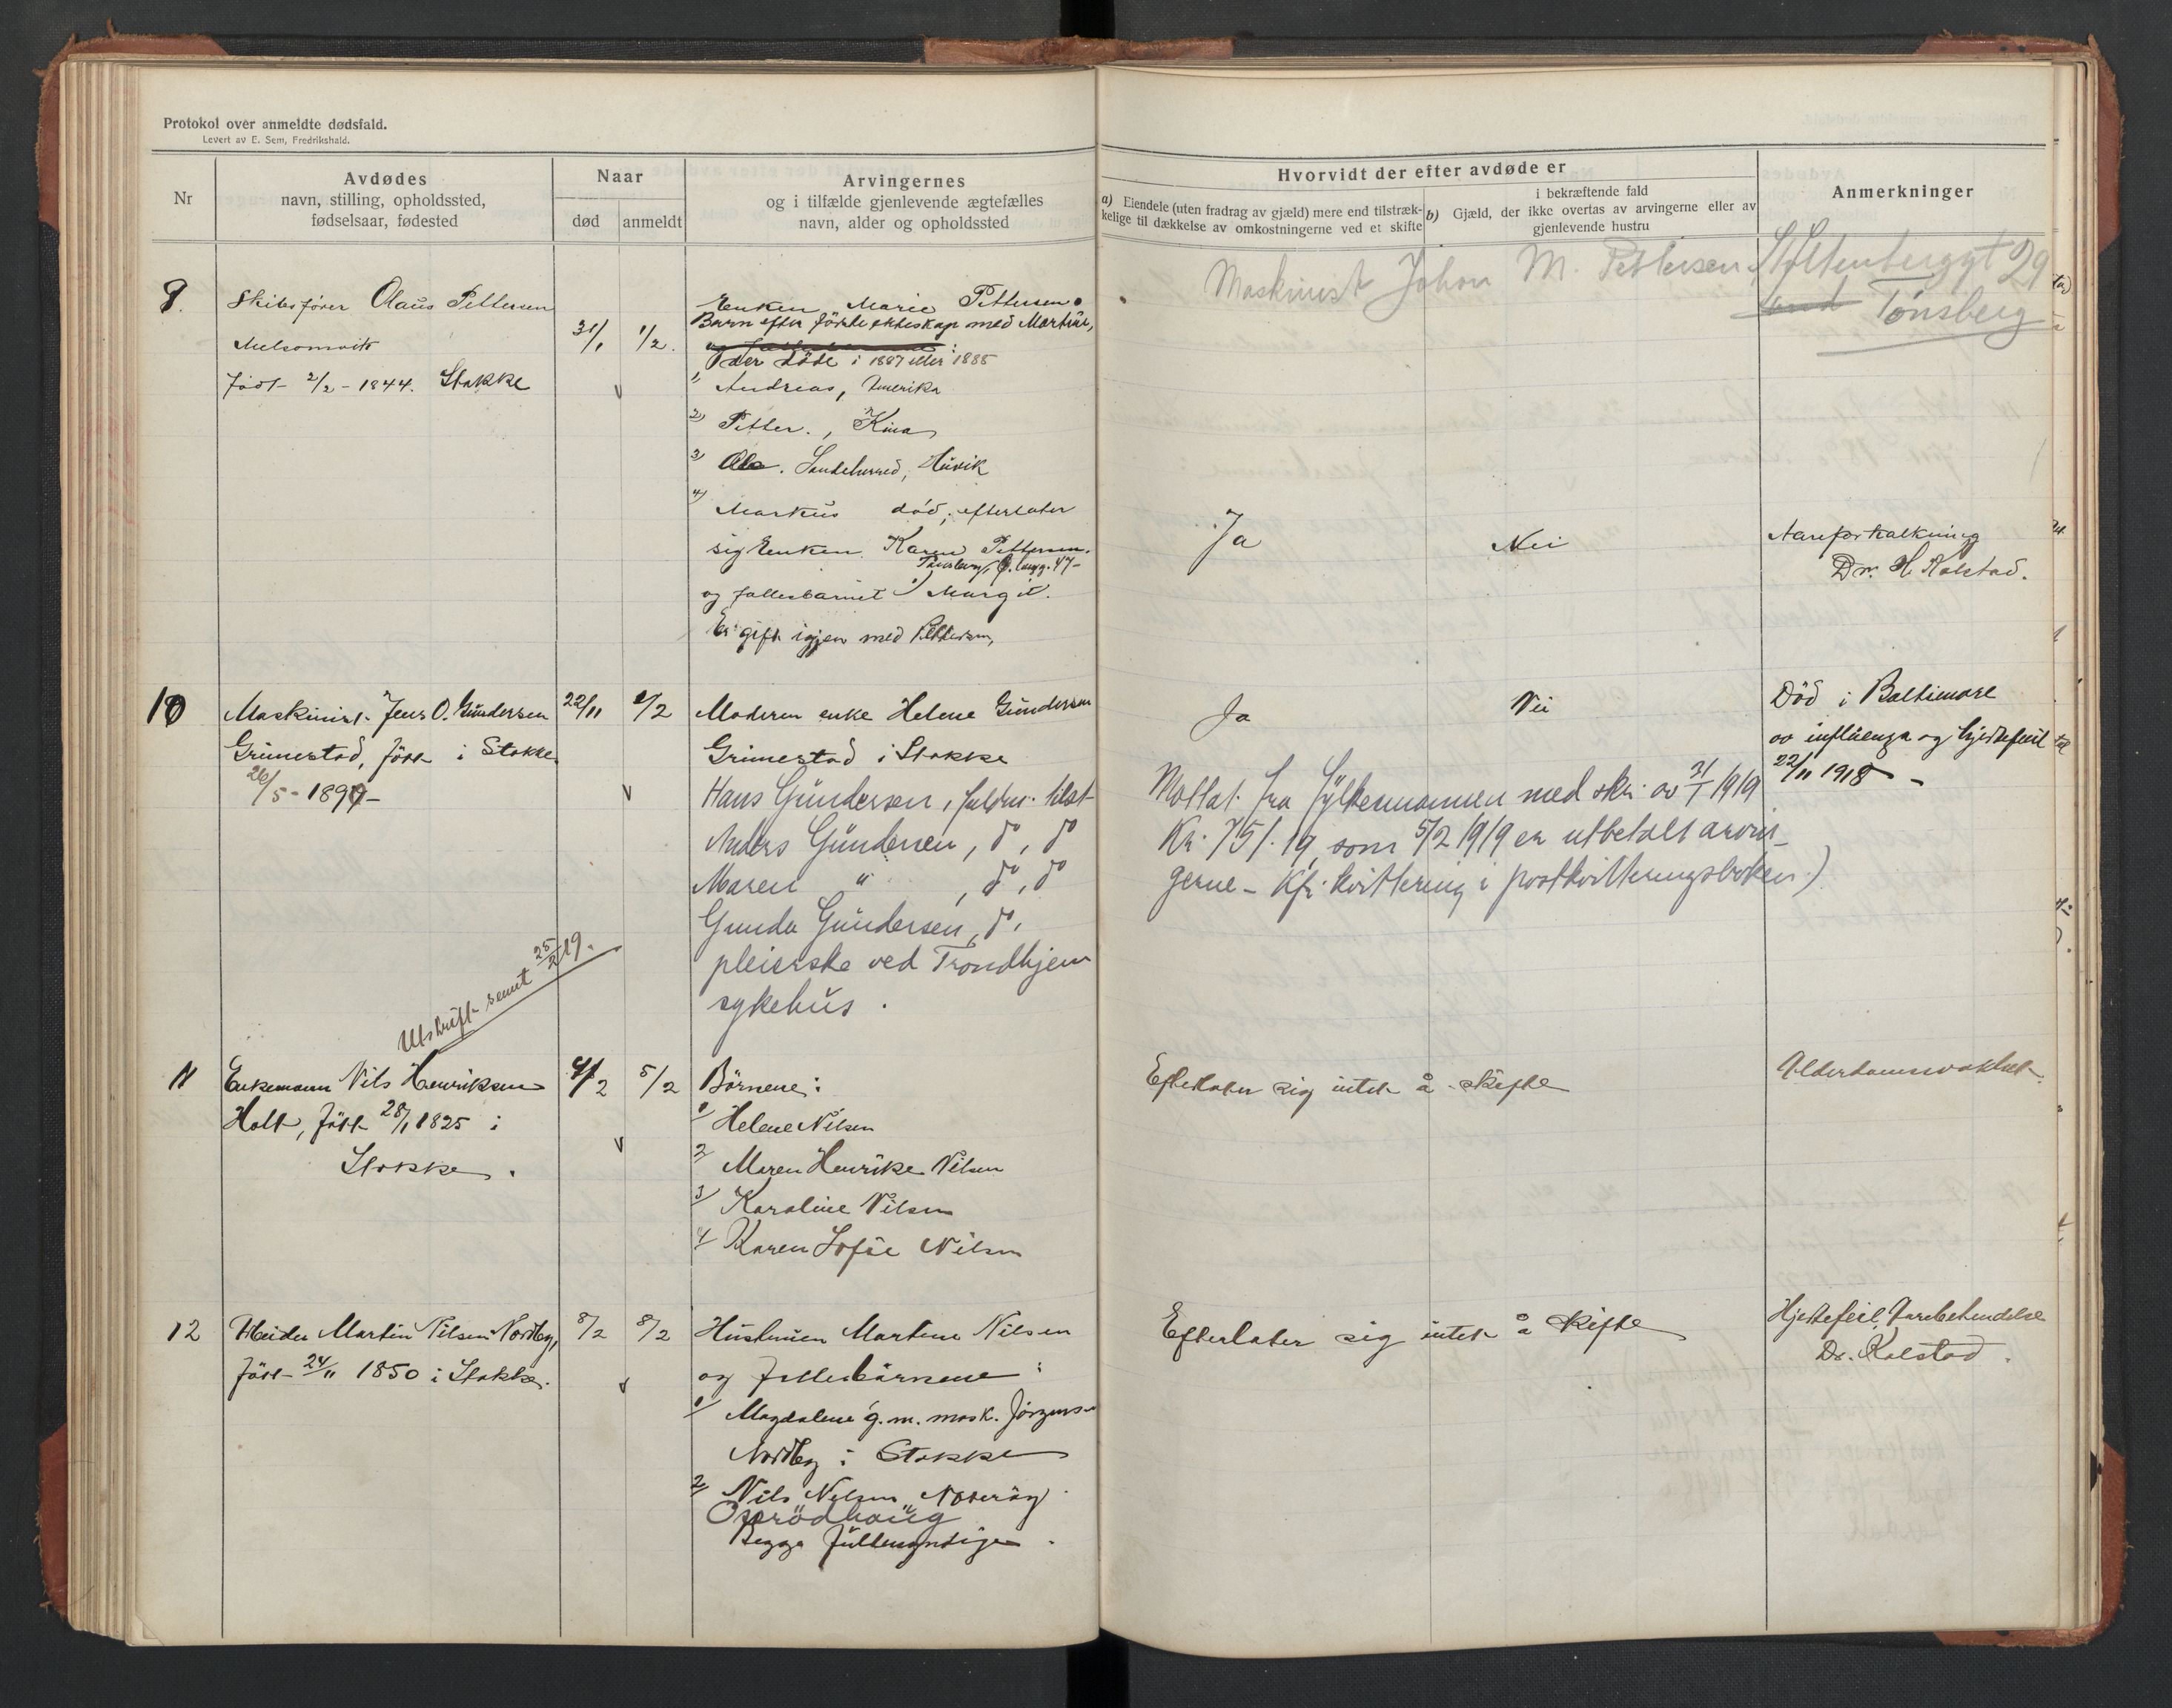 Protokol over anmeldte dødsfald.
Levert av E. Sem, Fredrikshald.
Nr
Avdødes
navn, stilling, opholdssted,
fødselsaar, fødested
Naar
død
anmeldt
Arvingernes
og i tilfælde gjenlevende ægtefælles
navn, alder og opholdssted
Hvorvidt der efter avdøde er
a) Eiendele (uten fradrag av gjæld) mere end tilstræk-
kelige til dækkelse av omkostningerne ved et skifte
i bekræftende fald
b) Gjæld, der ikke overtas av arvingerne eller av
gjenlevende hustru
Anmerkninger
Maskinist Johan M. Pettersen Stoltenberggt 29
Tønsberg
9.
Skibsfører Olaus Pettersen
Melsomvik
født 2/2 - 1844. Stokke
31/1
1/2.
Enken Marie Pettersen
Barn efter første ekteskap med Martine,
der døde i 1887 eller 1888
1) Andreas, Amerika
2) Petter., Kina
3) Ole. Sandeherred, Husvik
4) Markus død, efterlater
sig Enken Karen Pettersen.
Tønsberg, 47-
og fellesbarnet 1) Margit.
Er gift igjen med Pettersen,
Ja
Nei
Aareforkalkning
Dr. H. Kolstad.
10
Maskinist Jens O. Gundersen
Grimestad, født i Stokke
26/5 - 1890 -
22/11
1/2
Moderen enke Helene Gundersen
Grimestad i Stokke
Hans Gundersen, fuldm. tilst
Anders Gundersen, do, do
Maren " , do, do
Gunda Gundersen, do,
pleierske ved Trondhjem
sykehus.
Ja
Nei
Død i Baltimore
av influenza og hjertefeil
22/11 1918 -
Mottat fra fylkesmannen med skr. av 31/1 1919
Kr. 751.19, som 5/2 1919 er utbetalt arvin-
gerne - Kfr. kvittering i postkvitteringsboken.)
Utskrift sendt 25/2 19.
11
Enkemann Nils Henriksen
Holt, født 28/1 1825 i
Stokke.
4/2
5/2
Børnene:
1/ Helene Nilsen
2/ Maren Henrike Nilsen
3/ Karoline Nilsen
4/ Karen Sofie Nilsen
Efterlater sig intet å skifte
Alderdomssvakhet
12
Arbeider Martin Nilsen Nordby,
født 24/11 1850 i Stokke.
8/2
8/2
Hustruen Martine Nilsen
og fellesbørnene:
1/ Magdalene g. m. mask. Jørgensen
Nordby i Stokke
2/ Nils Nilsen Nøterøy
Oserødhaug
Begge fuldmyndige.
Efterlater sig intet å skifte
Hjertefeil, Aarebetendelse
Dr. Kolstad.